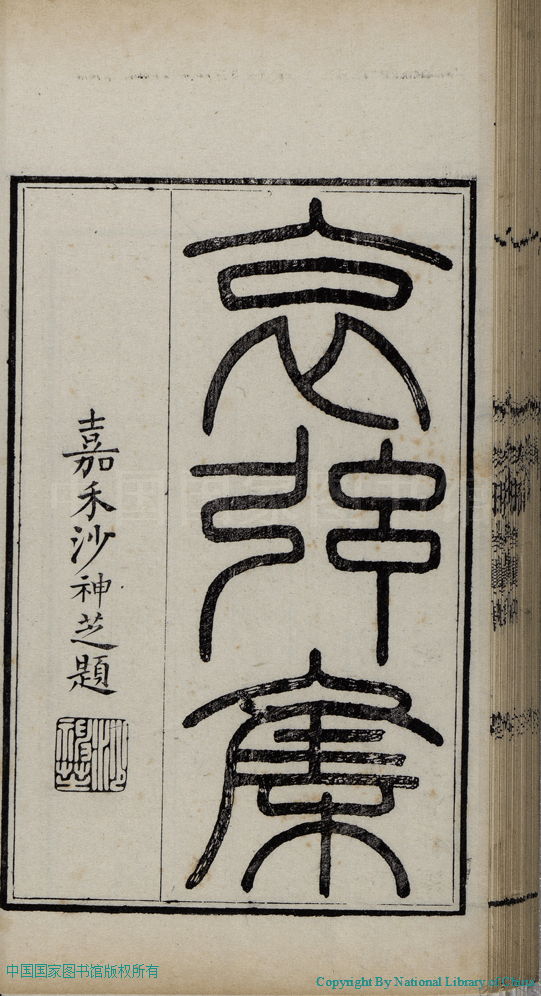 哀弦集
嘉禾沙神芝題
沙神芝
中国国家图书馆版权所有
Copyright By National Library of China